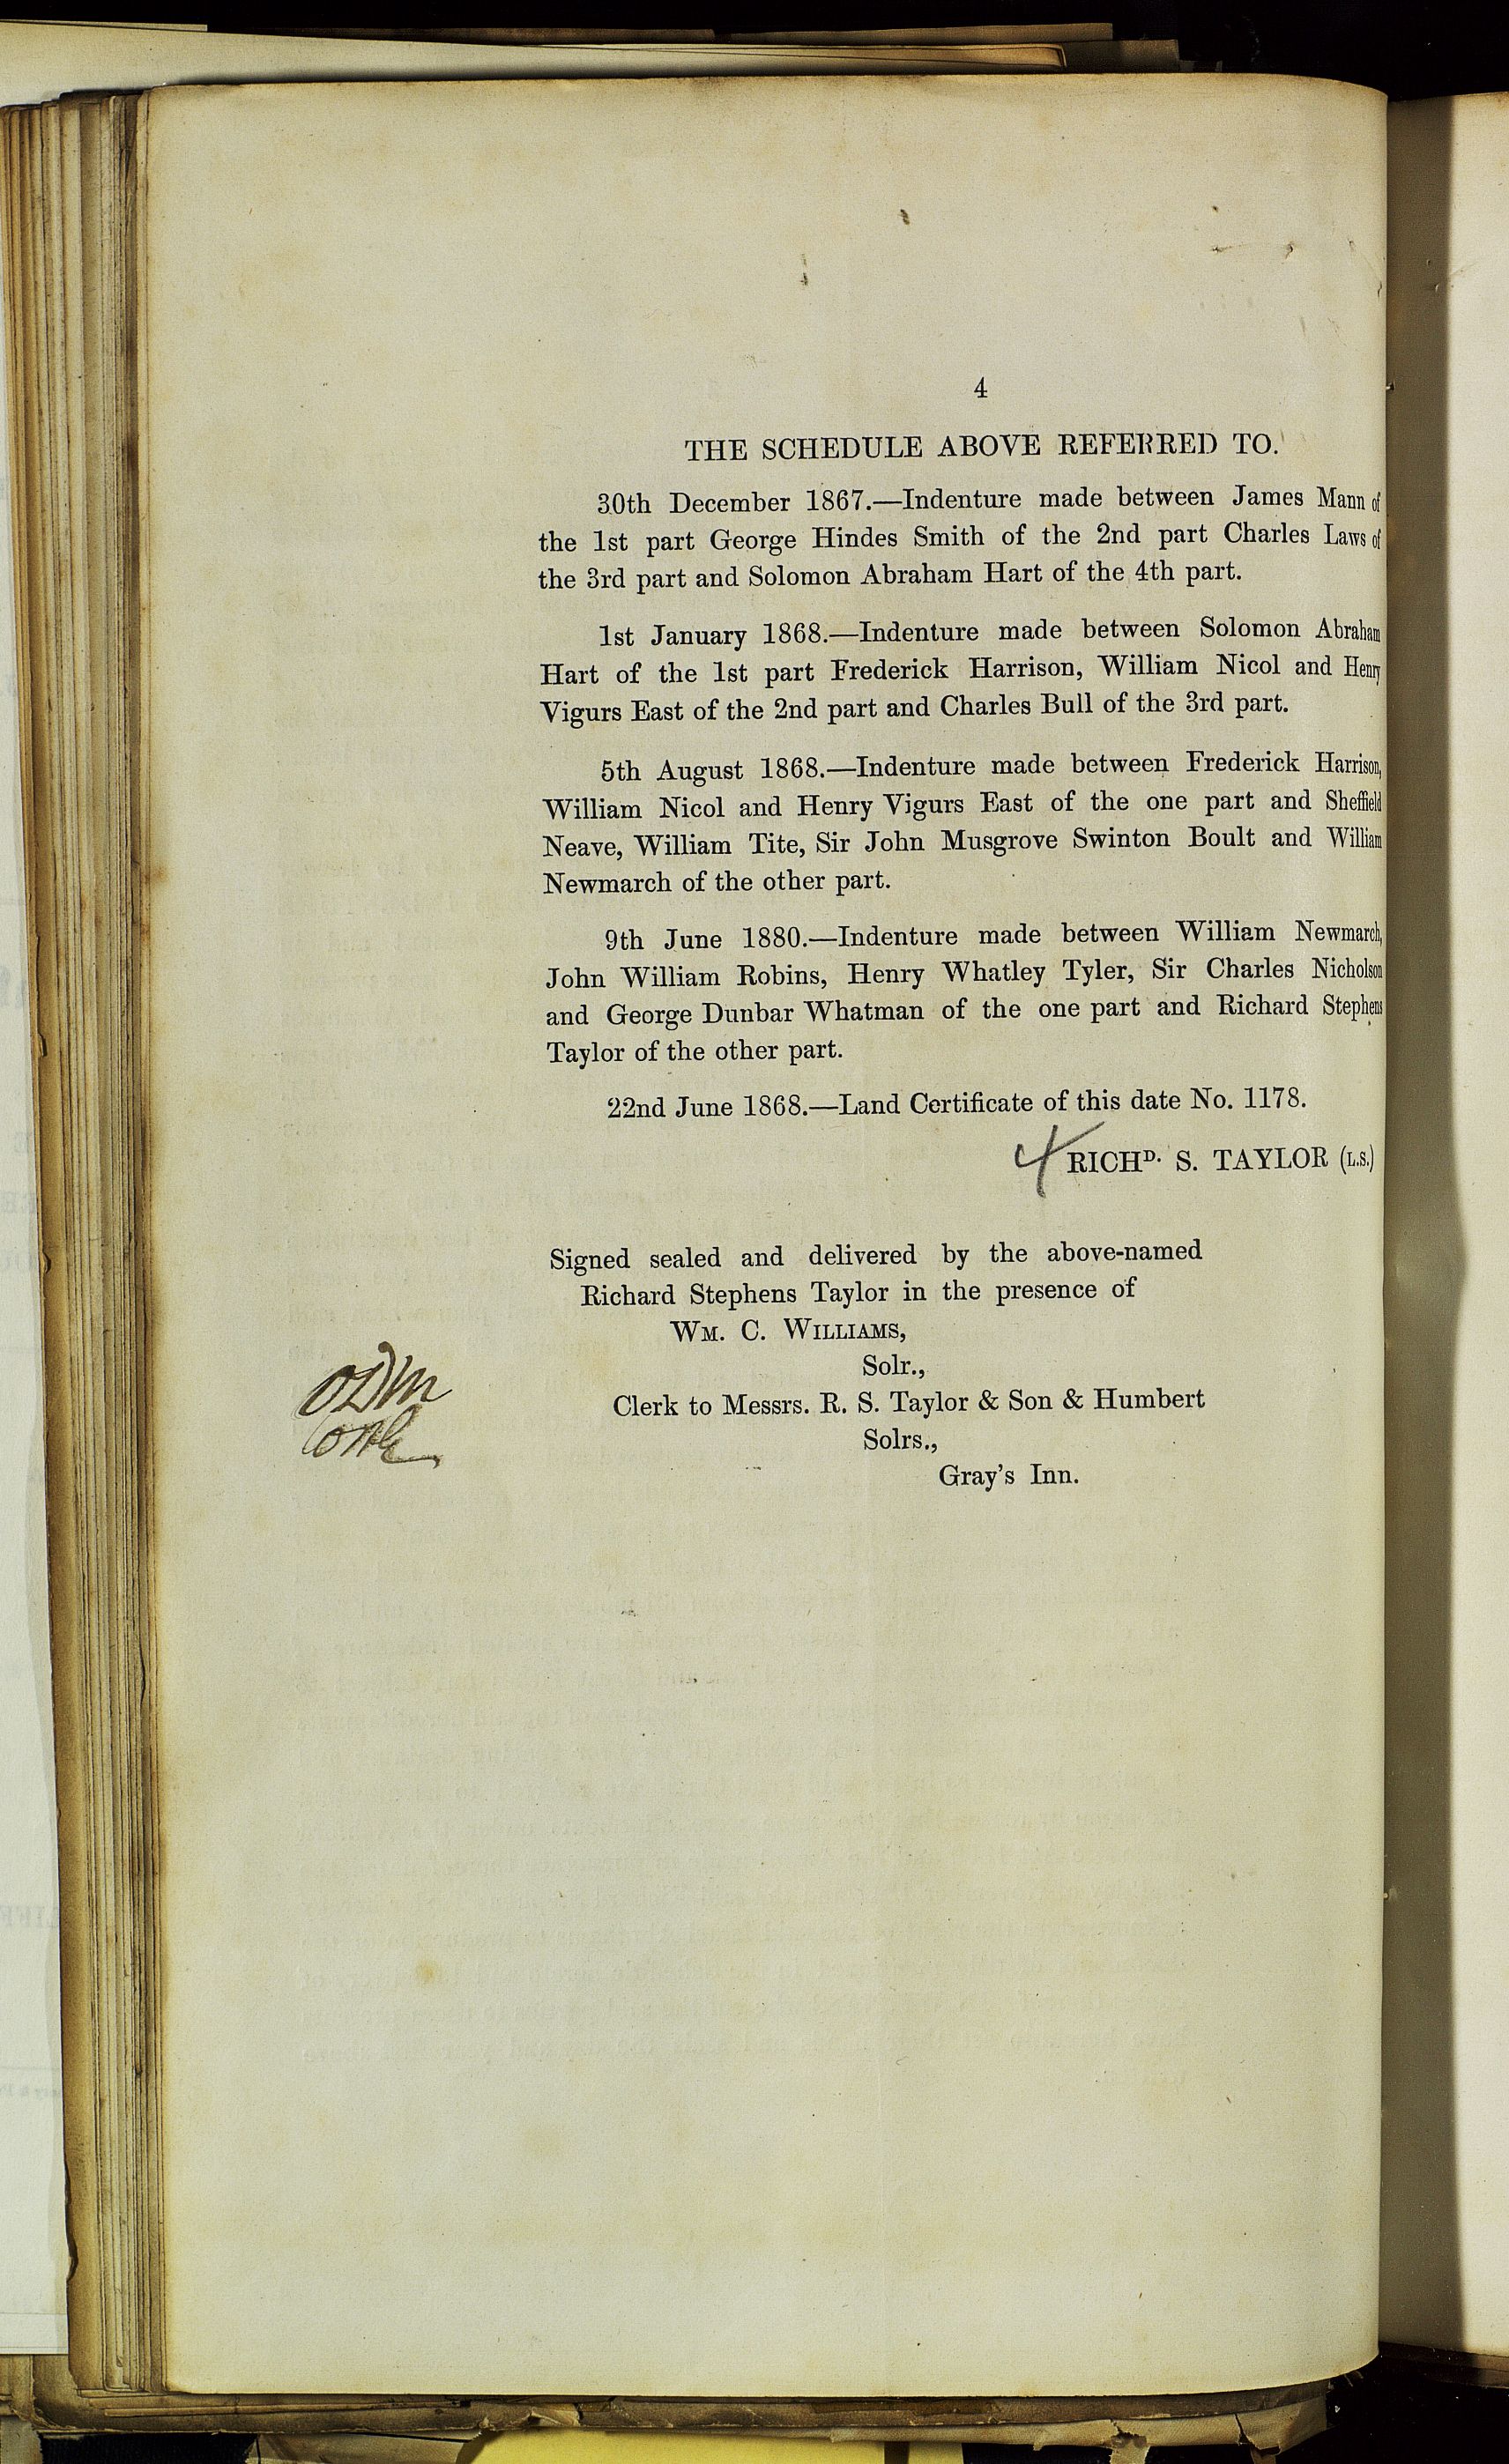 4
THE SCHEDULE ABOVE REFERRED TO.
30th December 1867.—Indenture made between James Mann of
the 1st part George Hindes Smith of the 2nd part Charles Laws of
the 3rd part and Solomon Abraham Hart of the 4th part.
1st January 1868.—Indenture made between Solomon Abraham
Hart of the 1st part Frederick Harrison, William Nicol and Henry
Vigurs East of the 2nd part and Charles Bull of the 3rd part.
5th August 1868.—Indenture made between Frederick Harrison,
William Nicol and Henry Vigurs East of the one part and Sheffield
Neave, William Tite, Sir John Musgrove Swinton Boult and William
Newmarch of the other part.
9th June 1880.—Indenture made between William Newmarch,
John William Robins, Henry Whatley Tyler, Sir Charles Nicholson
and George Dunbar Whatman of the one part and Richard Stephens
Taylor of the other part.
22nd June 1868.—Land Certificate of this date No. 1178.
RICHD. S. TAYLOR (L.S.)
Signed sealed and delivered by the above-named
Richard Stephens Taylor in the presence of
WM. C. WILLIAMS,
Solr.,
Clerk to Messrs. R. S. Taylor & Son & Humbert
Solrs.,
Gray's Inn.